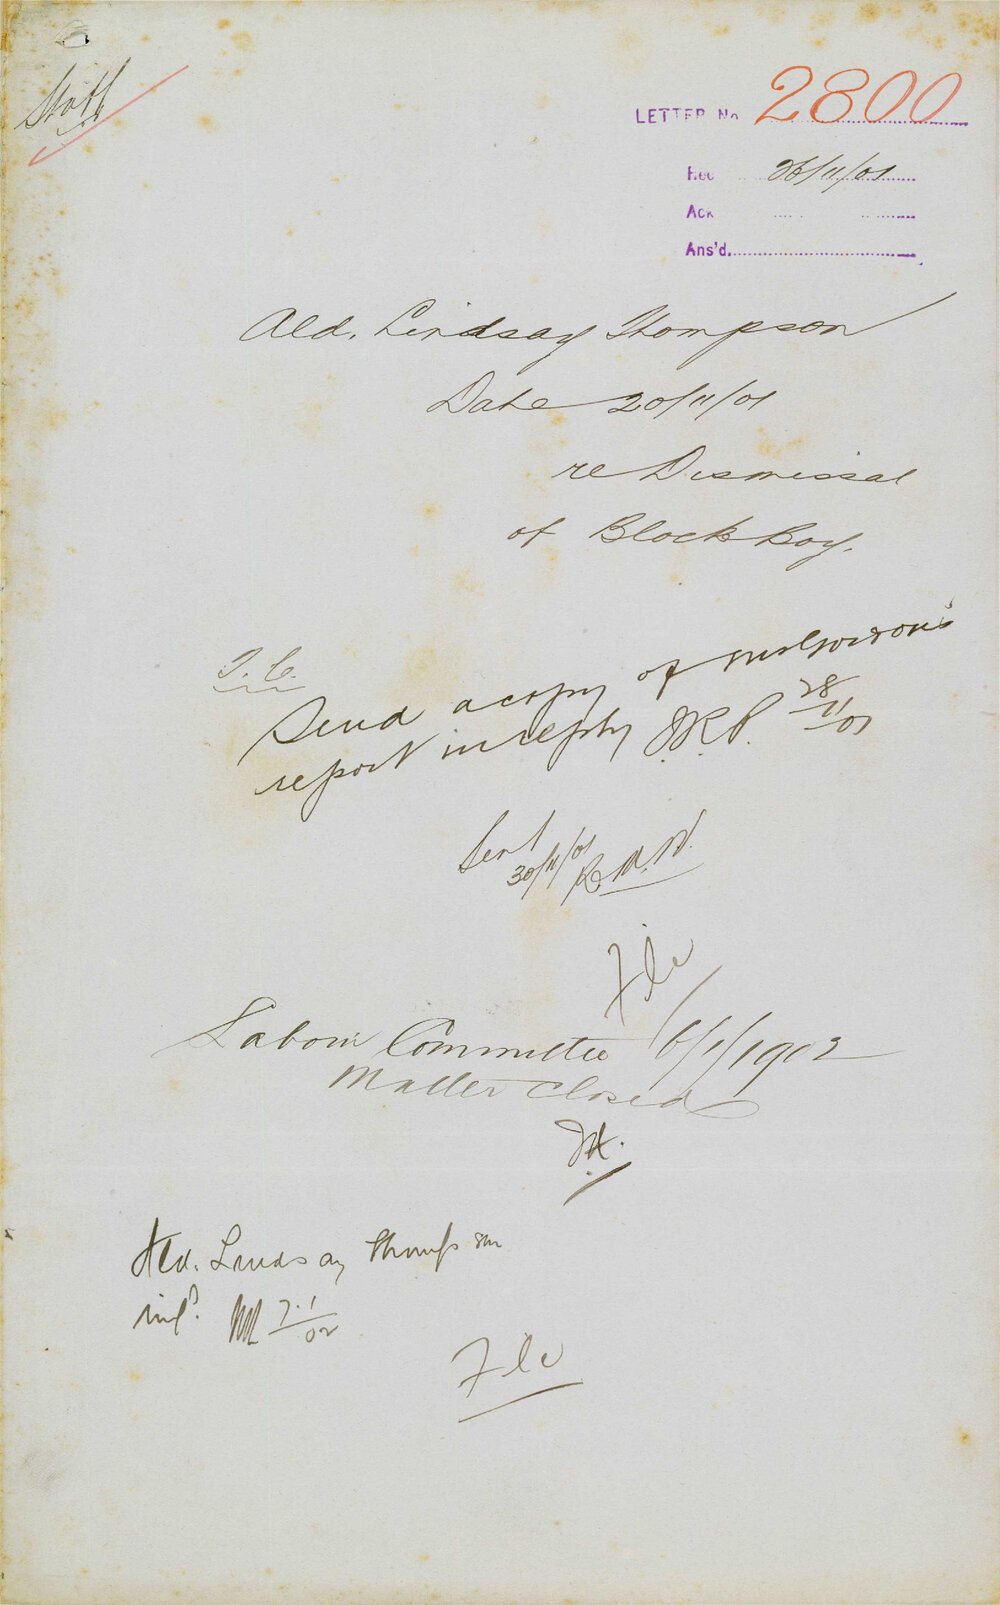 Staff
LETTER No 2800
Rec 26/11/01
Ack
Ans'd.
Ald. Lindsay Thompson
Date 20/11/01
re Dismissal
of Block Boy.
T. C.
Send a copy of
report in reply J.R.P. 28/11/01
Sent
30/11/01 R.M.W.
File
Labour Committee 6/1/1902
Matter Closed
Ald. Lindsay Thompson
infd. 7.1/02
File